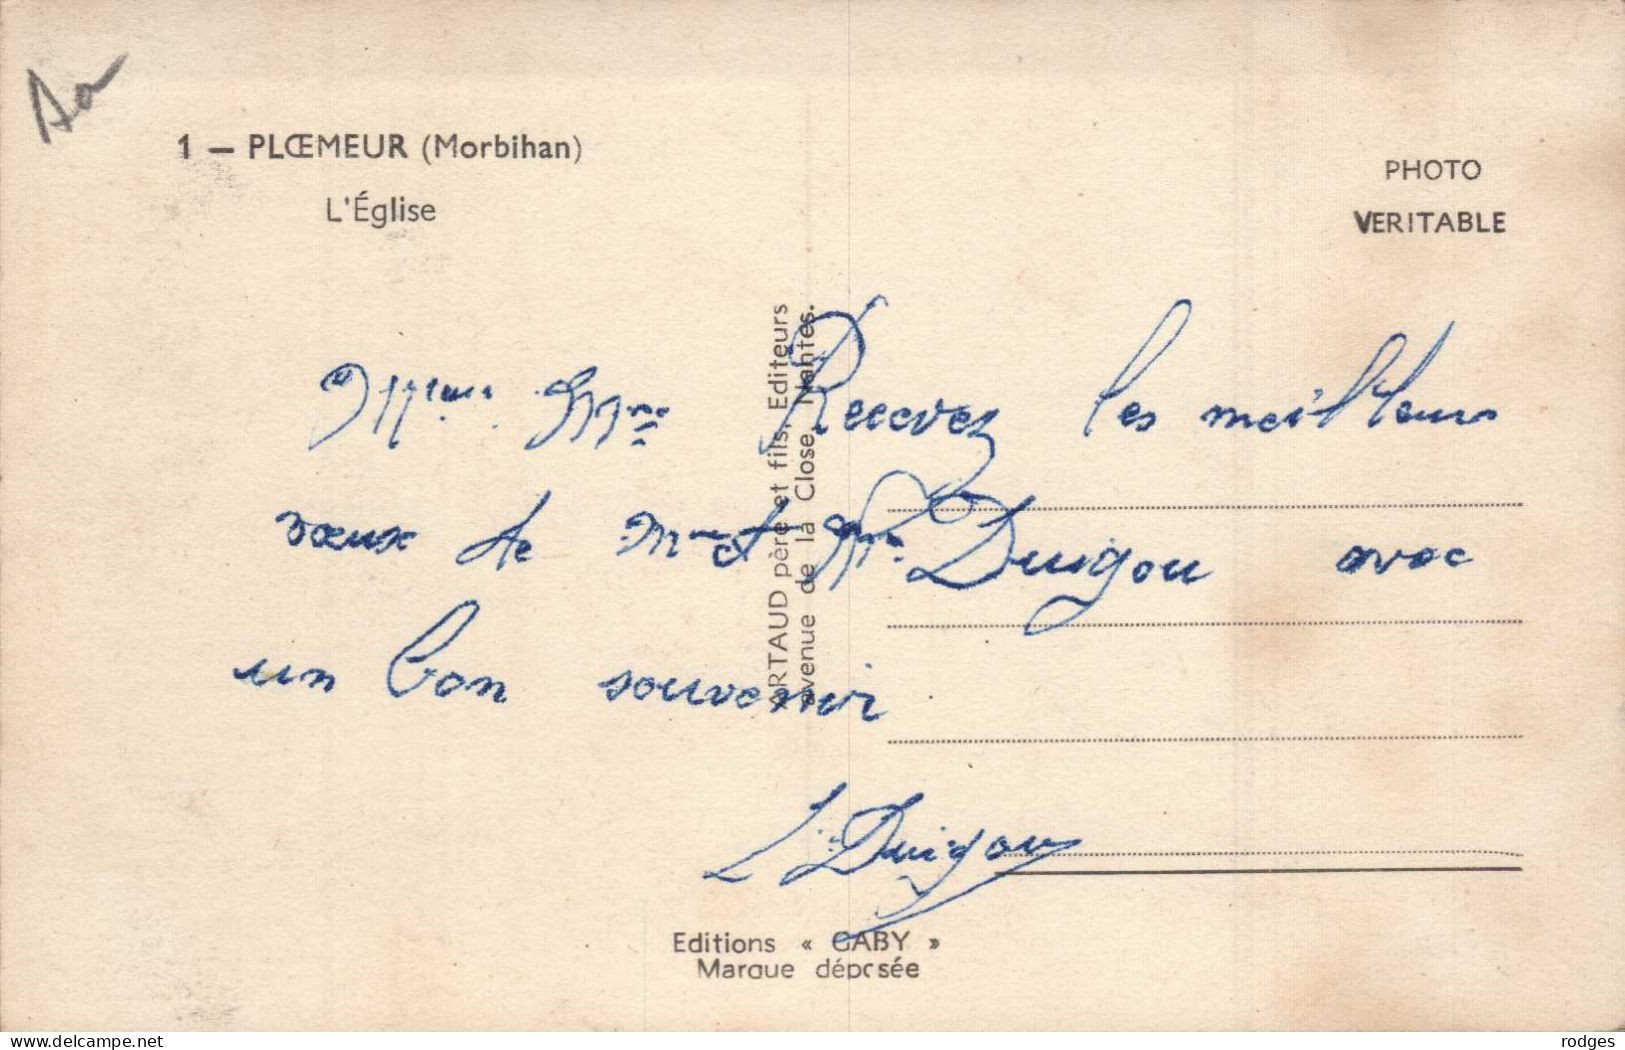 1 — PLŒMEUR (Morbihan)
L'Église
PHOTO
VERITABLE
ARTAUD père et fils, Editeurs
avenue de la Close, Nantes.
Mme Recevez les meilleurs
vœux de Mr et Mme Duigou avec
un bon souvenir
L. Duigou
Editions « GABY »
Marque déposée
delcampe.net
rodges